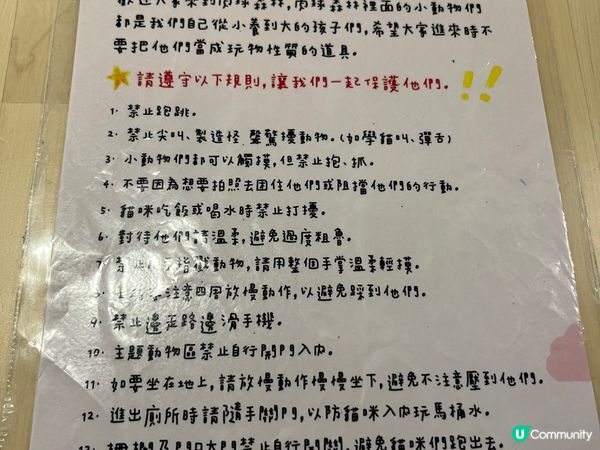 歡迎大家來到肉球森林,肉球森林裡面的小動物們
都是我們自己從小養到大的孩子們,希望大家進來時不
要把他們當成玩物性質的道具。
請遵守以下規則,讓我們一起保護他們。!!
1. 禁止跑跳。
2. 禁止尖叫、製造怪聲驚擾動物。(如學貓叫、彈舌)
3. 小動物們都可以觸摸,但禁止抱、抓。
4. 不要因為想要拍照去困住他們或阻擋他們的行動。
5. 貓咪吃飯或喝水時禁止打擾。
6. 對待他們請溫柔,避免過度粗魯。
7. 禁止 指戳動物,請用整個手掌溫柔輕摸。
8. 注意四周放慢動作,以避免踩到他們。
9. 禁止邊走路邊滑手機。
10. 主題動物區禁止自行開門入內。
11. 如要坐在地上,請放慢動作慢慢坐下,避免不注意壓到他們。
12. 進出廁所時請隨手關門,以防貓咪入內玩馬桶水。
13. 柵欄及門口大門禁止自行開關,避免貓咪們跑出去。
U Community